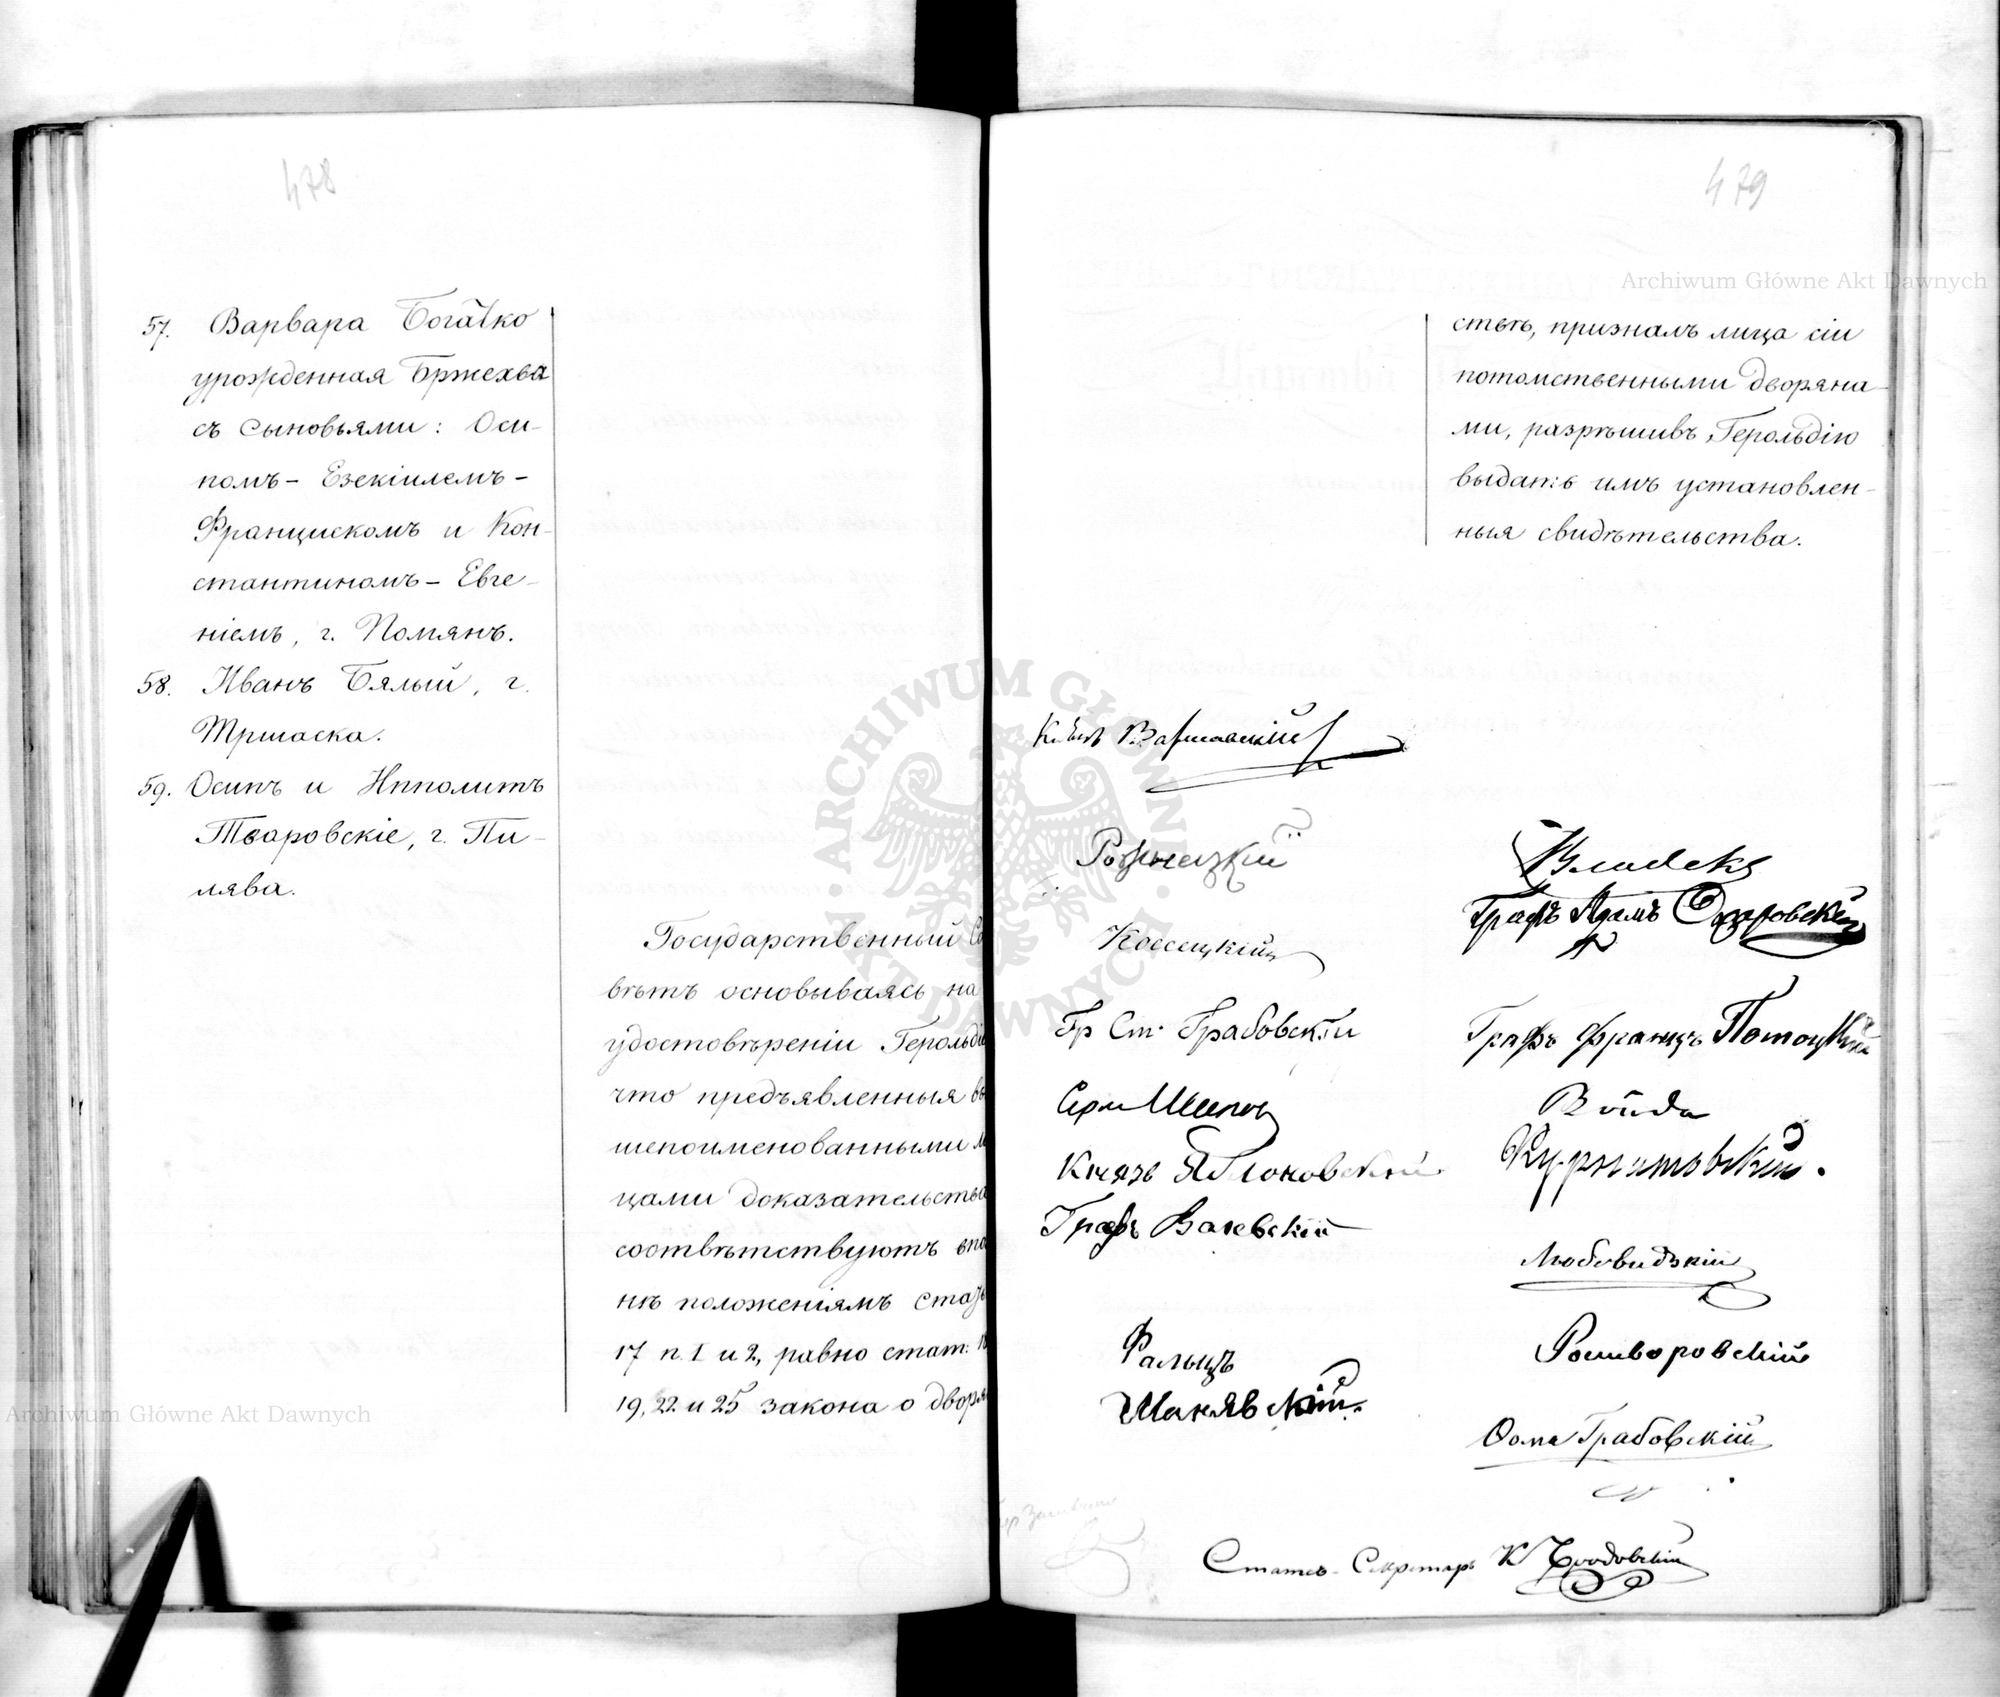 478
57. Варвара Богатко
урожденная Бржехва
съ сыновьями: Оси-
помъ - Езекіилемъ -
Францискомъ и Кон-
стантиномъ - Евге-
ніемъ, г. Помянъ.
58. Иванъ Бялый, г.
Тршаска.
59. Осипъ и Ипполитъ
Тваровскіе, г. Пи-
лява.
Государственный Со
вѣтъ основываясь на
удостовѣреніи Герольдіи
что предъявленныя вы
шепоименованными ли
цами доказательства
соотвѣтствуютъ впо
лнѣ положеніямъ стат
17 п. 1 и 2, равно стат: 18
19, 22 и 25 закона о дворян
479
ствѣ, призналъ лица сіи
потомственными дворяна-
ми, разрѣшивъ Герольдію
выдать имъ установлен-
ныя свидѣтельства.
Князь Варшавскій
Рожнецкій
Коссецкій
Гр Ст. Грабовскій
Шиповъ
Князь Яблоновскій
Графъ Валевскій
Фальцъ
Шанявскій
Графъ Адамъ Ожаровскій
Графъ Францъ Потоцкій
Войда
Любовидзкій
Ростворовскій
Ѳома Грабовскій
Статсъ-Секретарь К Бродовскій
Archiwum Główne Akt Dawnych
Archiwum Główne Akt Dawnych
ARCHIWUM GŁÓWNE AKT DAWNYCH